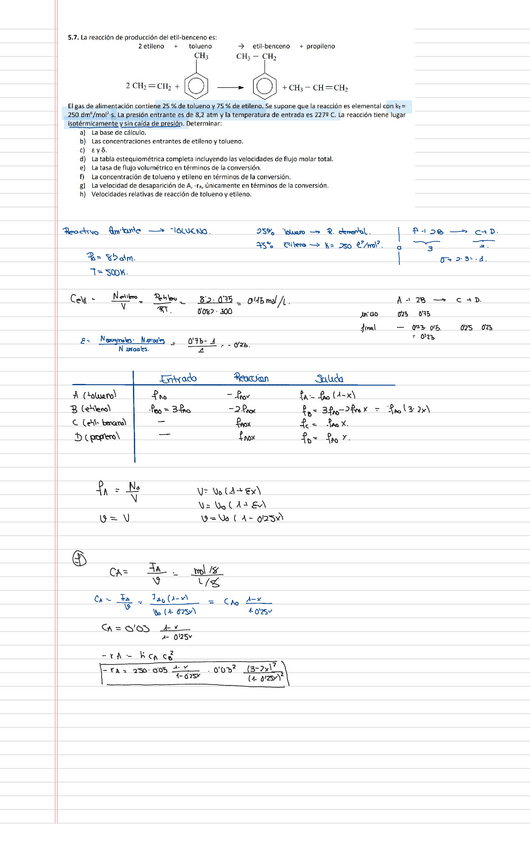 5.7. La reacción de producción del etil-benceno es:
2 etileno + tolueno → etil-benceno + propileno
CH3 CH3 − CH2
2 CH2=CH2 + → + CH3 − CH=CH2
El gas de alimentación contiene 25 % de tolueno y 75 % de etileno. Se supone que la reacción es elemental con kT =
250 dm6/mol2·s. La presión entrante es de 8,2 atm y la temperatura de entrada es 227º C. La reacción tiene lugar
isotérmicamente y sin caída de presión. Determinar:
a) La base de cálculo.
b) Las concentraciones entrantes de etileno y tolueno.
c) ε y δ.
d) La tabla estequiométrica completa incluyendo las velocidades de flujo molar total.
e) La tasa de flujo volumétrico en términos de la conversión.
f) La concentración de tolueno y etileno en términos de la conversión.
g) La velocidad de desaparición de A, -rA, únicamente en términos de la conversión.
h) Velocidades relativas de reacción de tolueno y etileno.
Reactivo limitante → TOLUENO.
25% tolueno → R. elemental.
75% Etileno → k = 250 l²/mol².
A + 2B → C + D.
T = 500K.
A + 2B → C + D.
inicio 0'25 0'75
final
Entrada Reaccion Salida
A (tolueno) fAo -fAoX fA = fAo (1-x)
B (etileno) fBo = 3fAo -2fAoX fB = 3fAo - 2fAo x = fAo (3-2x)
C (etil-benceno) — fAoX fC = fAo x.
D (propileno) — fAoX fD = fAo x.
V = Vo (1 + εx)
V = Vo (1 + εx)
v = V v = Vo (1 - 0'25x)
f
CA = FA/v = mol/s / L/s
CA = FA/v = FAo (1-x) / vo (1-0'25x) = CAo 1-x / 1-0'25x
CA = 0'05 1-x / 1-0'25x
-rA = k CA CB²
-rA = 250 · 0'05 1-x / 1-0'25x · 0'03² (3-2x)² / (1-0'25x)²